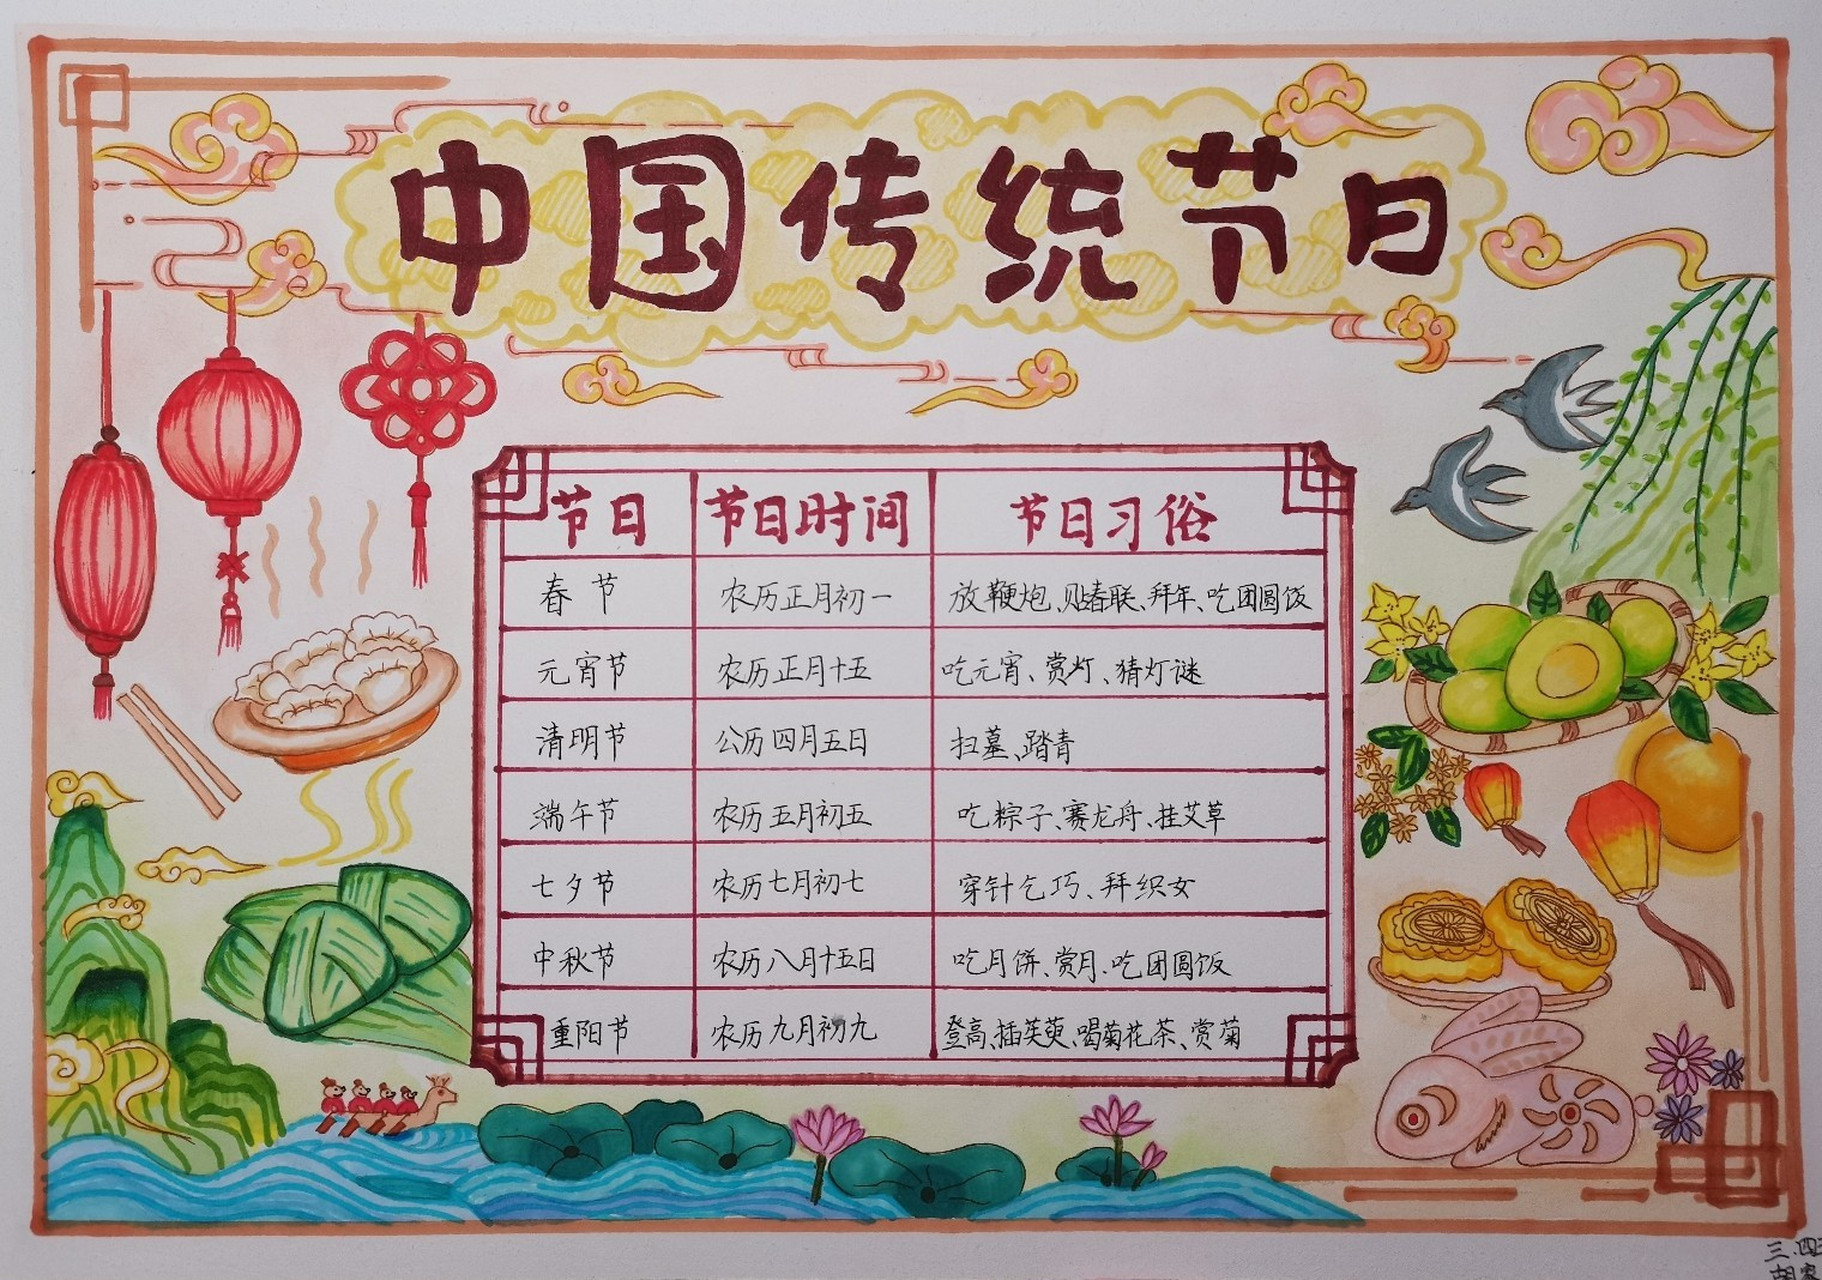 中国传统节日
节日 节日时间 节日习俗
春节 农历正月初一 放鞭炮、贴春联、拜年、吃团圆饭
元宵节 农历正月十五 吃元宵、赏灯、猜灯谜
清明节 公历四月五日 扫墓、踏青
端午节 农历五月初五 吃粽子、赛龙舟、挂艾草
七夕节 农历七月初七 穿针乞巧、拜织女
中秋节 农历八月十五日 吃月饼、赏月、吃团圆饭
重阳节 农历九月初九 登高、插茱萸、喝菊花茶、赏菊
三.四